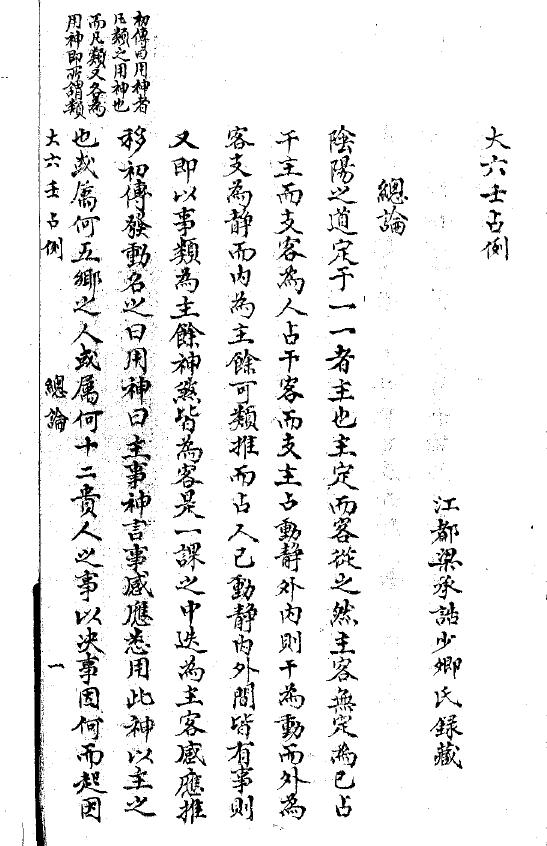 大六壬占例
江都梁承誥少卿氏錄藏
總論
陰陽之道定于一一者主也主定而客從之然主客無定為己占
干主而支客為人占干客而支主占動靜外內則干為動而外為
客支為靜而內為主餘可類推而占人己動靜內外間皆有事則
又即以事類為主餘神煞皆為客是一課之中迭為主客感應推
移初傳發動名之曰用神曰主事神言事感應悉用此神以主之
初傳曰用神者
凡類之用神也
而凡類又各為
用神即所謂類
也或屬何五鄉之人或屬何十二貴人之事以決事因何而起因
大六壬占例
總論
一